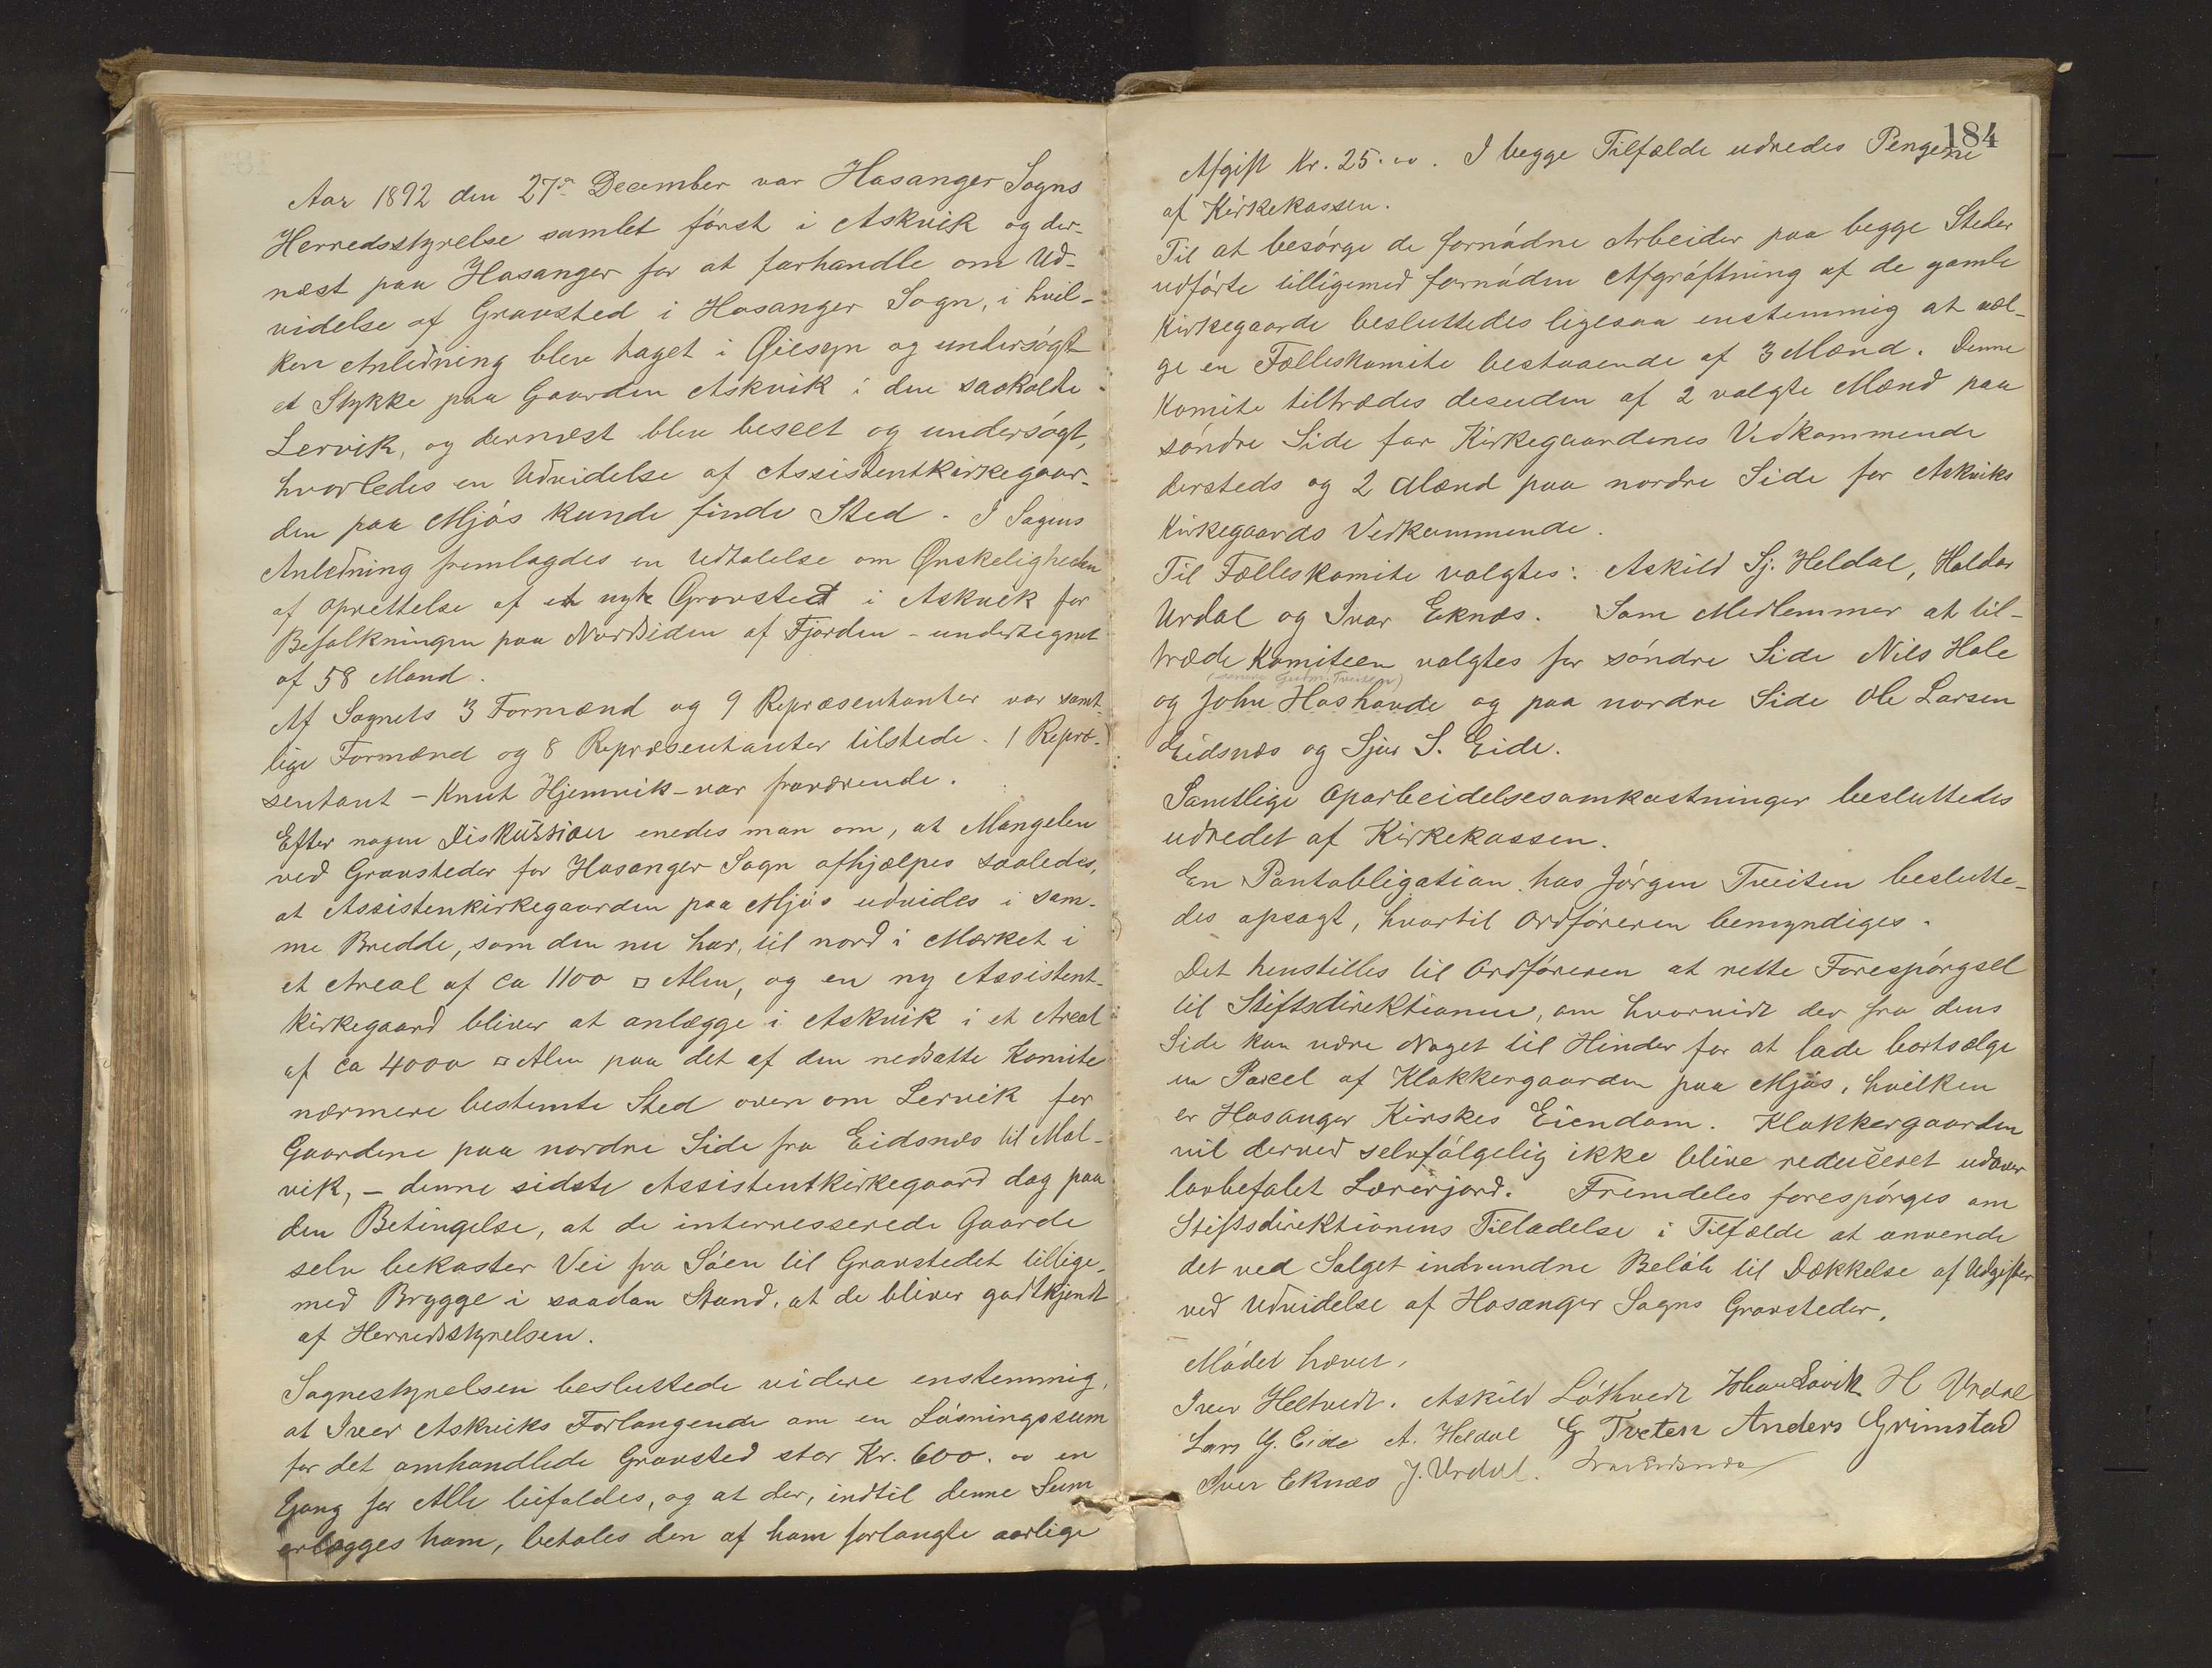 Aar 1892 den 27de December var Hosanger Sogns
Herredsstyrelse samlet først i Askvik og der-
næst paa Hosanger for at forhandle om Ud-
videlse af Gravsted i Hosanger Sogn, i hvil-
ken Anledning blev taget i Øiesyn og undersøgt
et Stykke paa Gaarden Askvik i den saakaldte
Lervik, og dernæst blev beseet og undersøgt,
hvorledes en Udvidelse af Assistentkirkegaar-
den paa Mjøs kunde finde Sted. I Sagens
Anledning fremlagdes en Udtalelse om Ønskeligheden
af Oprettelse af et nyt Gravsted i Askvik for
Befolkningen paa Nordsiden af Fjorden - undertegnet
af 58 Mand.
Af Sognets 3 Formænd og 9 Repræsentanter var samt-
lige Formænd og 8 Repræsentanter tilstede. 1 Repræ-
sentant - Knut Hjemvik - var fraværende.
Efter nogen Diskussion enedes man om, at Mangelen
ved Gravsteder for Hosanger Sogn afhjælpes saaledes,
at Assistenkirkegaarden paa Mjøs udvides i sam-
me Bredde, som den nu har, til nord i Mærket i
et Areal af ca 1100 □ Alen, og en ny Assistent-
kirkegaard bliver at anlægge i Askvik i et Areal
af ca 4000 □ Alen paa det af den nedsatte Komite
nærmere bestemte Sted oven om Lervik for
Gaardene paa nordre Side fra Eidsnes til Mol-
vik, - denne sidste Assistentkirkegaard dog paa
den Betingelse, at de interresserede Gaarde
selv bekoster Vei fra Søen til Gravstedet tillige-
med Brygge i saadan Stand, at de bliver godtkjendt
af Herredsstyrelsen.
Sognestyrelsen besluttede videre enstemmig,
at Iver Askviks Forlangende om en Løsningssum
for det omhandlede Gravsted stor Kr. 600.00 en
Gang for Alle bifaldes, og at der, indtil denne Sum
erlægges ham, betales den af ham forlangte aarlige
184
Afgift Kr. 25.00. I begge Tilfælde udredes Pengene
af Kirkekassen.
Til at besørge de fornødne Arbeider paa begge Steder
udførte tilligemed fornøden Afgrøftning af de gamle
Kirkegaarde besluttedes ligesaa enstemmig at væl-
ge en Fælleskomite bestaaende af 3 Mænd. Denne
Komite tiltrædes desuden af 2 valgte Mænd paa
søndre Side for Kirkegaardenes Vedkommende
dersteds og 2 Mænd paa nordre Side for Askviks
Kirkegaards Vedkommende.
Til Fælleskomite valgtes: Askild Sj. Heldal, Haldor
Urdal og Ivar Eknæs. Som Medlemmer at til-
træde Komiteen valgtes for søndre Side Nils Hole
(senere Gudm. Tveiten)
og John Hoshovde og paa nordre Side Ole Larsen
Eidsnæs og Sjur S. Eide.
Samtlige Oparbeidelsesomkostninger besluttedes
udredet af Kirkekassen.
En Pantobligation hos Jørgen Tveiten beslutte-
des opsagt, hvortil Ordføreren bemyndiges.
Det henstilles til Ordføreren at rette Forespørgsel
til Stiftsdirektionen, om hvorvidt der fra dens
Side kan være Noget til Hinder for at lade bortsælge
en Parcel af Klokkergaarden paa Mjøs, hvilken
er Hosanger Kirkes Eiendom. Klokkergaarden
vil derved selvfølgelig ikke blive reduceret udover
lovbefalet Lærerjord. Fremdeles forespørges om
Stiftsdirektionens Tilladelse i Tilfælde at anvende
det ved Salget indvundne Beløb til Dækkelse af Udgifter
ved Udvidelse af Hosanger Sogns Gravsteder.
Mødet hævet.
Iver Heltvedt. Askild Løthvedt Johan Søvik H Urdal
Lars G. Eide A. Heldal G Tveten Anders Grimstad
Iver Eknæs J. Urdal.